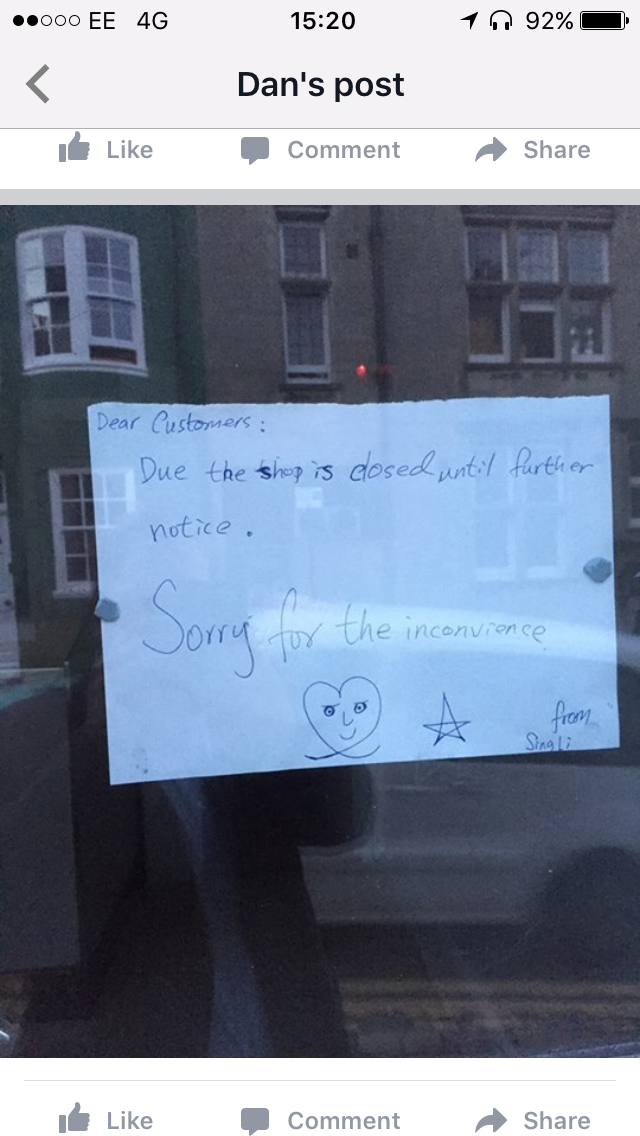 EE 4G 15:20 92%
Dan's post
Like Comment Share
Dear Customers:
Due the shop is closed until further
notice.
Sorry for the inconvience
from
Sing Li
Like Comment Share